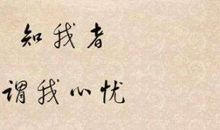 知我者
谓我心忧